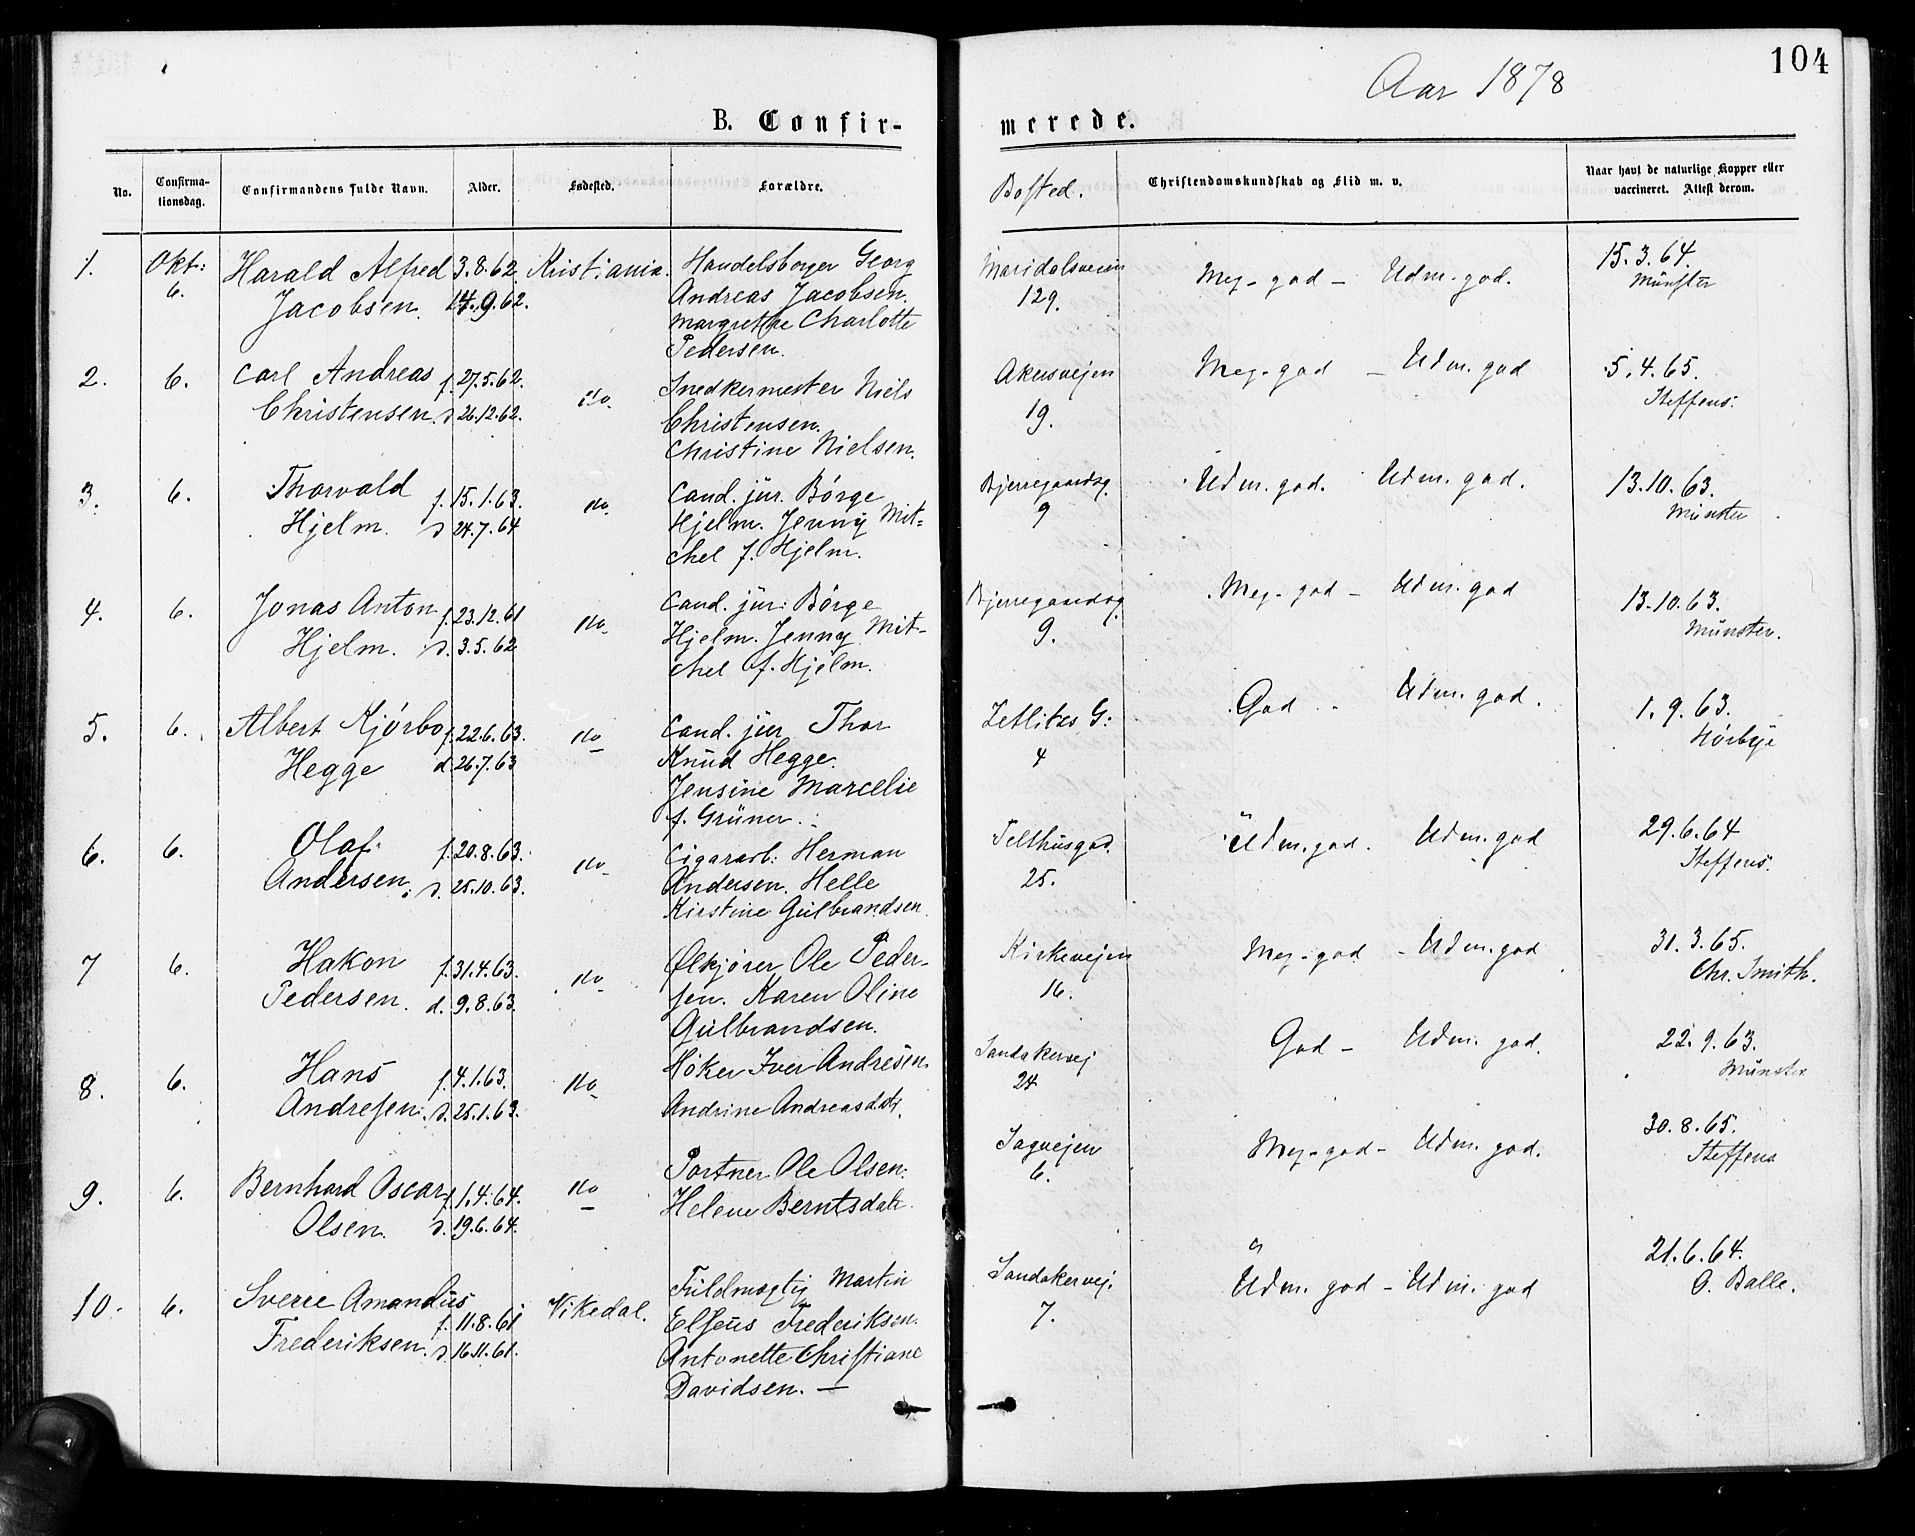 104
Aar 1878
B. Confir-
merede.
No.
Confirma-
tionsdag.
Confirmandens fulde Navn.
Alder.
Fødested.
Forældre.
Bosted.
Christendomskundskab og Flid m. v.
Naar havt de naturlige Kopper eller
vaccineret. Attest derom.
1.
Okt:
6.
Harald Alfred
Jacobsen.
3.8.62.
14.9.62.
Kristiania.
Handelsborger Georg
Andreas Jacobsen.
Margrethe Charlotte
Pedersen.
Maridalsveien
129.
Meg. god – Udm. god.
15.3.64
Münster
2.
6.
Carl Andreas
Christensen.
f. 27.5.62.
d. 26.12.62.
do.
Snedkermester Niels
Christensen.
Christine Nielsen.
Akersvejen
19.
Meg. god – Udm. god
5.4.65.
Steffens.
3.
6.
Thorvald
Hjelm.
f. 15.1.63.
d. 24.7.64
do.
Cand. jur. Börge
Hjelm. Jenny Mit=
chel f. Hjelm.
Bjerregaardsg.
9
Udm. god. Udm. god.
13.10.63.
Münster
4.
6.
Jonas Anton
Hjelm.
f. 23.12.61
d. 3.5.62
do.
Cand. jur: Börge
Hjelm. Jenny Mit-
chel f. Hjelm.
Bjerregaardsg.
9.
Meg. god – Udm. god
13.10.63.
Münster.
5.
6.
Albert Kjörbo
Hegge
f. 22.6.63.
d. 26.7.63
do
Cand. jur Thor
Knud Hegge.
Jensine Marcelie
f. Grüner.
Zetlitzs G:
4
God Udm. god.
1.9.63.
Hörbye
6.
6.
Olaf
Andersen.
f. 20.8.63.
d. 25.10.63.
do.
Cigararb: Herman
Andersen. Helle
Kirstine Gulbrandsen.
Telthusgad.
25.
Udm. god. Udm. god
29.6.64
Steffens.
7
6.
Hakon
Pedersen.
f. 31.4.63.
d. 9.8.63.
do
Ølkjører Ole Peder-
sen. Karen Oline
Gulbrandsen.
Kirkevejen
16.
Meg. god – Udm. god
31.3.65.
Chr. Smith.
8.
6.
Hans
Andresen.
f. 4.1.63.
d. 25.1.63.
do
Høker Iver Andresen.
Andrine Andreasdatr.
Sandakervej
24
God – Udm. god.
22.9.63.
Münster
9.
6.
Bernhard Oscar
Olsen.
f. 1.4.64.
d. 19.6.64.
do
Portner Ole Olsen.
Helene Berntsdatr.
Sagvejen
6.
Meg. god – Udm. god.
30.8.65.
Steffens
10.
6.
Sverre Amandus
Frederiksen.
f. 11.8.61
d. 16.11.61.
Vikedal.
Fuldmægtig Martin
Elseus Frederiksen.
Antonette Christiane
Davidsen. –
Sandakervej.
7.
Udm. god – Udm. god
21.6.64.
O. Balle.